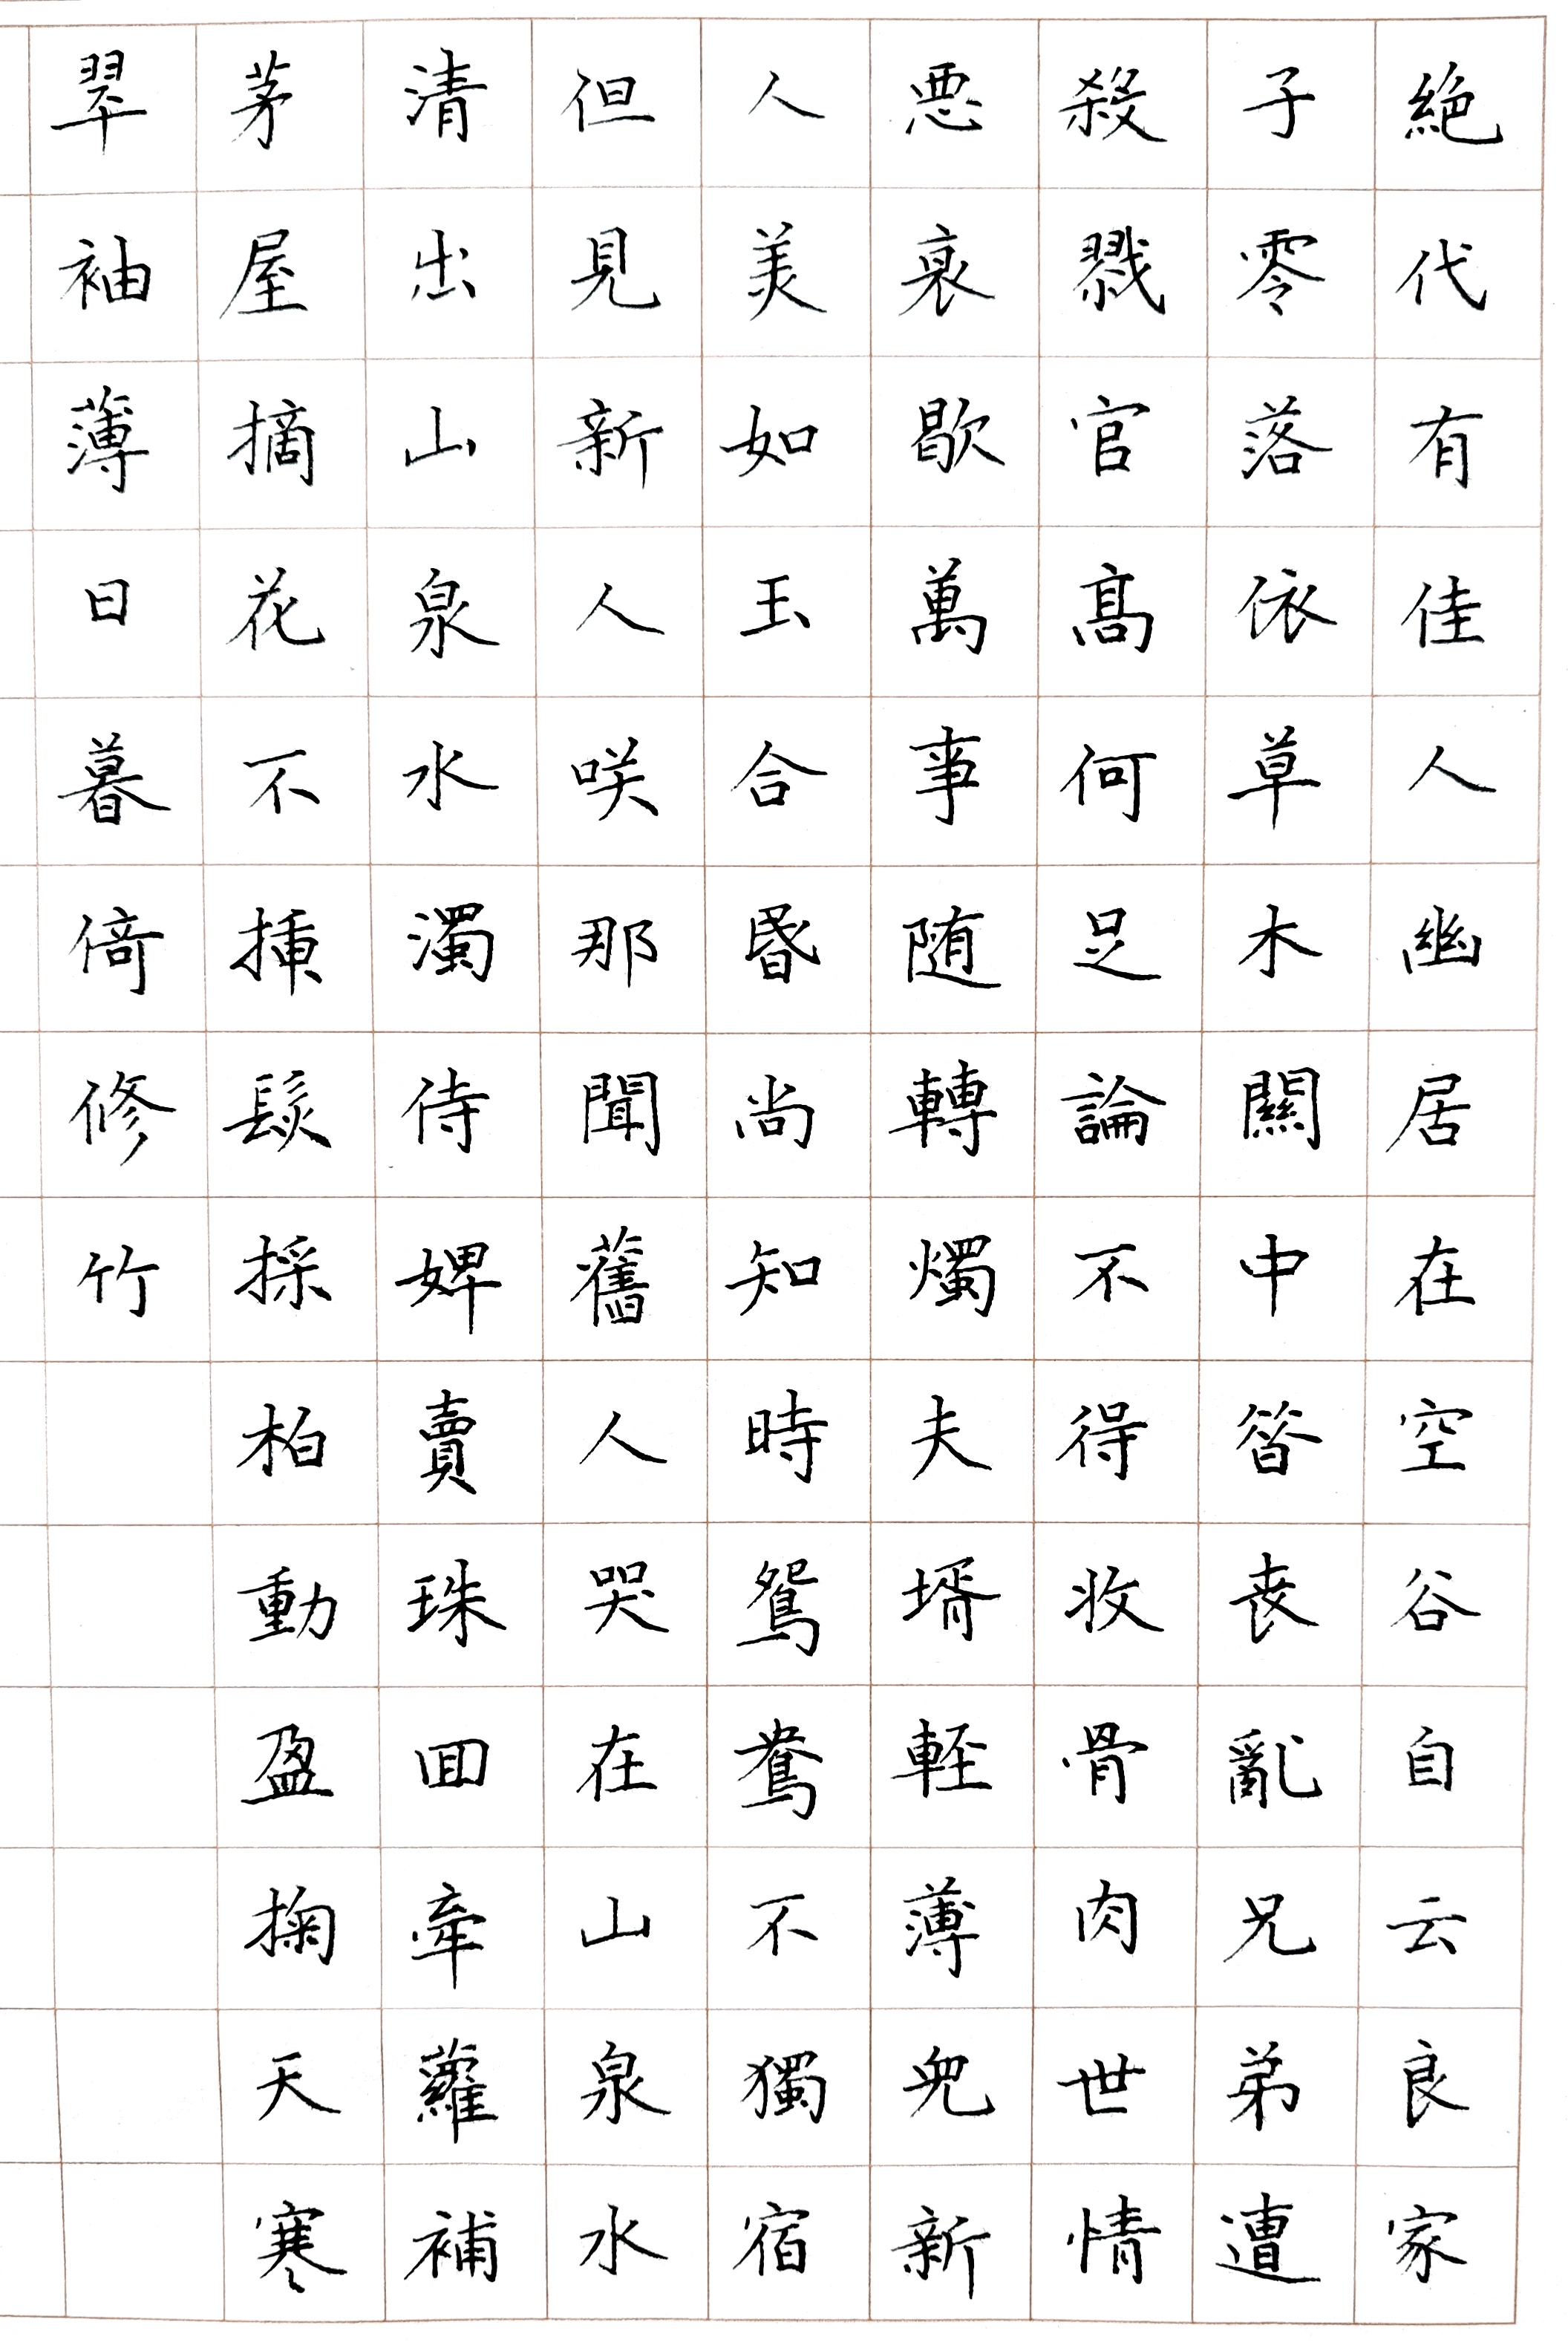 絶代有佳人幽居在空谷自云良家
子零落依草木關中昝喪亂兄弟遭
殺戮官髙何足論不得收骨肉世情
惡衰歇萬事随轉燭夫壻軽薄皃新
人美如玉合昬尚知時鴛鴦不獨宿
但見新人咲那聞舊人哭在山泉水
清出山泉水濁侍婢賣珠回牽蘿補
茅屋摘花不挿髮採柏動盈掬天寒
翠袖薄日暮倚修竹